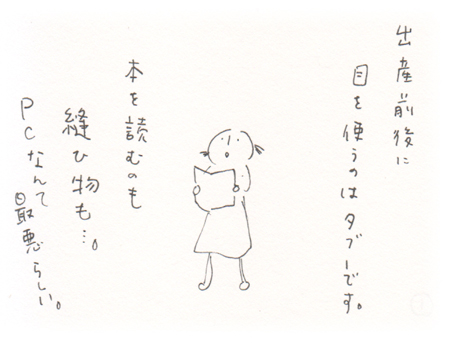 出産前後に
目を使うのはタブーです。
本を読むのも
縫ひ物も…。
PCなんて
最悪らしい。